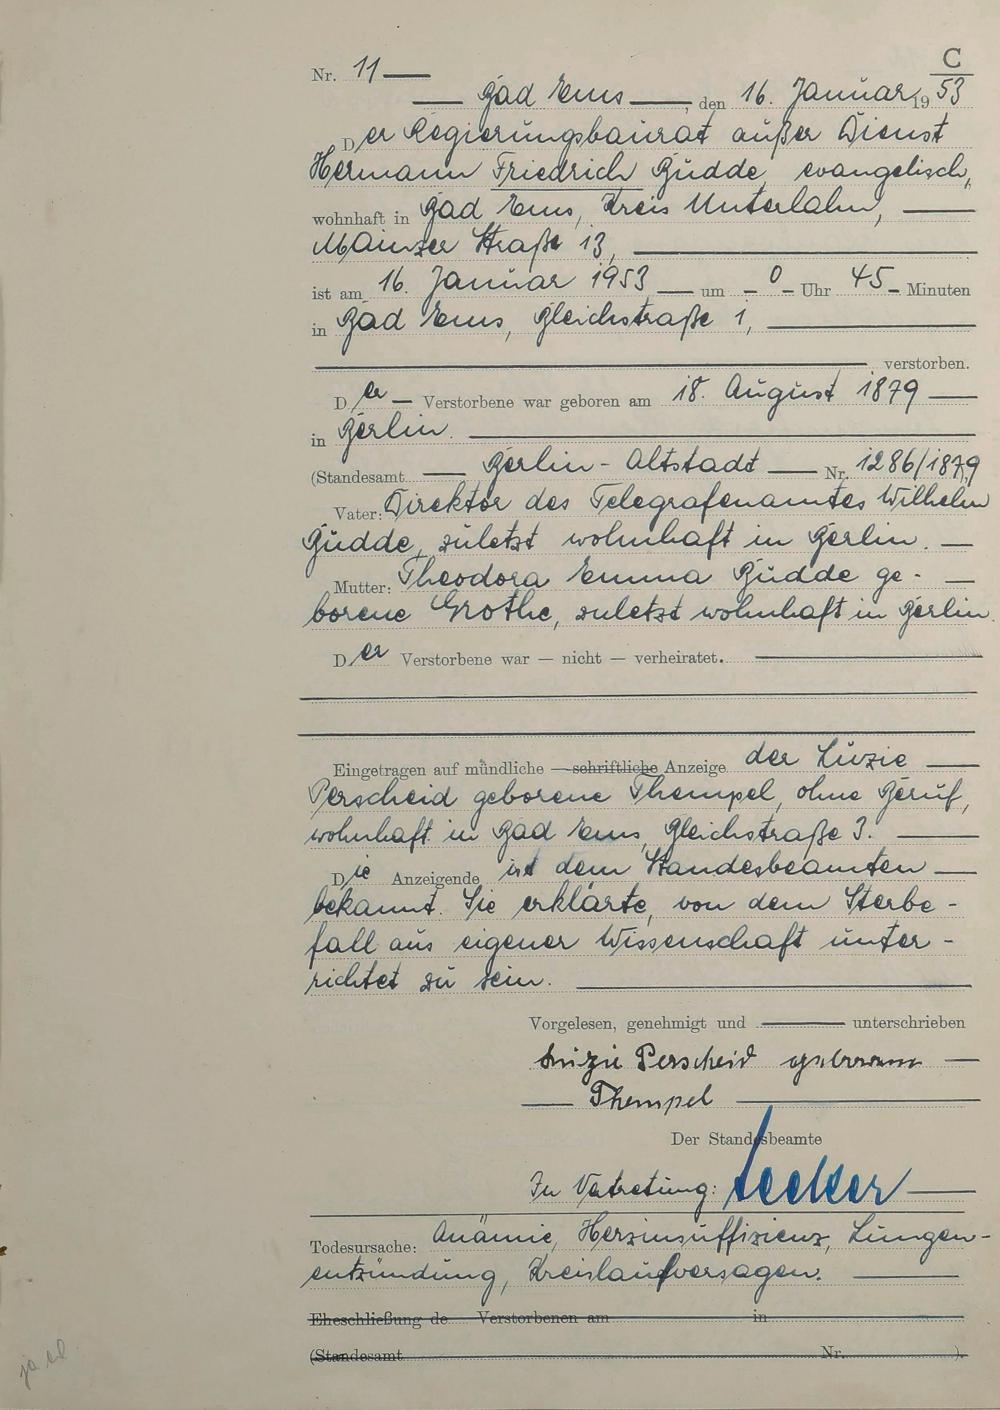 C
Nr. 11
Bad Ems, den 16. Januar 1953
Der Regierungsbaurat außer Dienst
Hermann Friedrich Budde evangelisch,
wohnhaft in Bad Ems, Kreis Unterlahn,
Mainzer Straße 13,
ist am 16. Januar 1953 um 0 Uhr 45 Minuten
in Bad Ems, Bleichstraße 1,
verstorben.
Der Verstorbene war geboren am 18. August 1879
in Berlin.
(Standesamt Berlin-Altstadt Nr. 1286/1879
Vater: Direktor des Telegrafenamtes Wilhelm
Budde, zuletzt wohnhaft in Berlin.
Mutter: Theodora Emma Budde ge-
borene Grothe, zuletzt wohnhaft in Berlin.
Der Verstorbene war — nicht — verheiratet.
Eingetragen auf mündliche — schriftliche Anzeige der Luzie
Perscheid geborene Thempel, ohne Beruf,
wohnhaft in Bad Ems, Bleichstraße 3.
Die Anzeigende ist dem Standesbeamten
bekannt. Sie erklärte, von dem Sterbe-
fall aus eigener Wissenschaft unter-
richtet zu sein.
Vorgelesen, genehmigt und unterschrieben
Luzie Perscheid geborene
Thempel
Der Standesbeamte
In Vertretung:
Todesursache: Anämie, Herzinsuffizienz, Lungen-
entzündung, Kreislaufversagen.
Eheschließung de Verstorbenen am in
(Standesamt Nr. ).